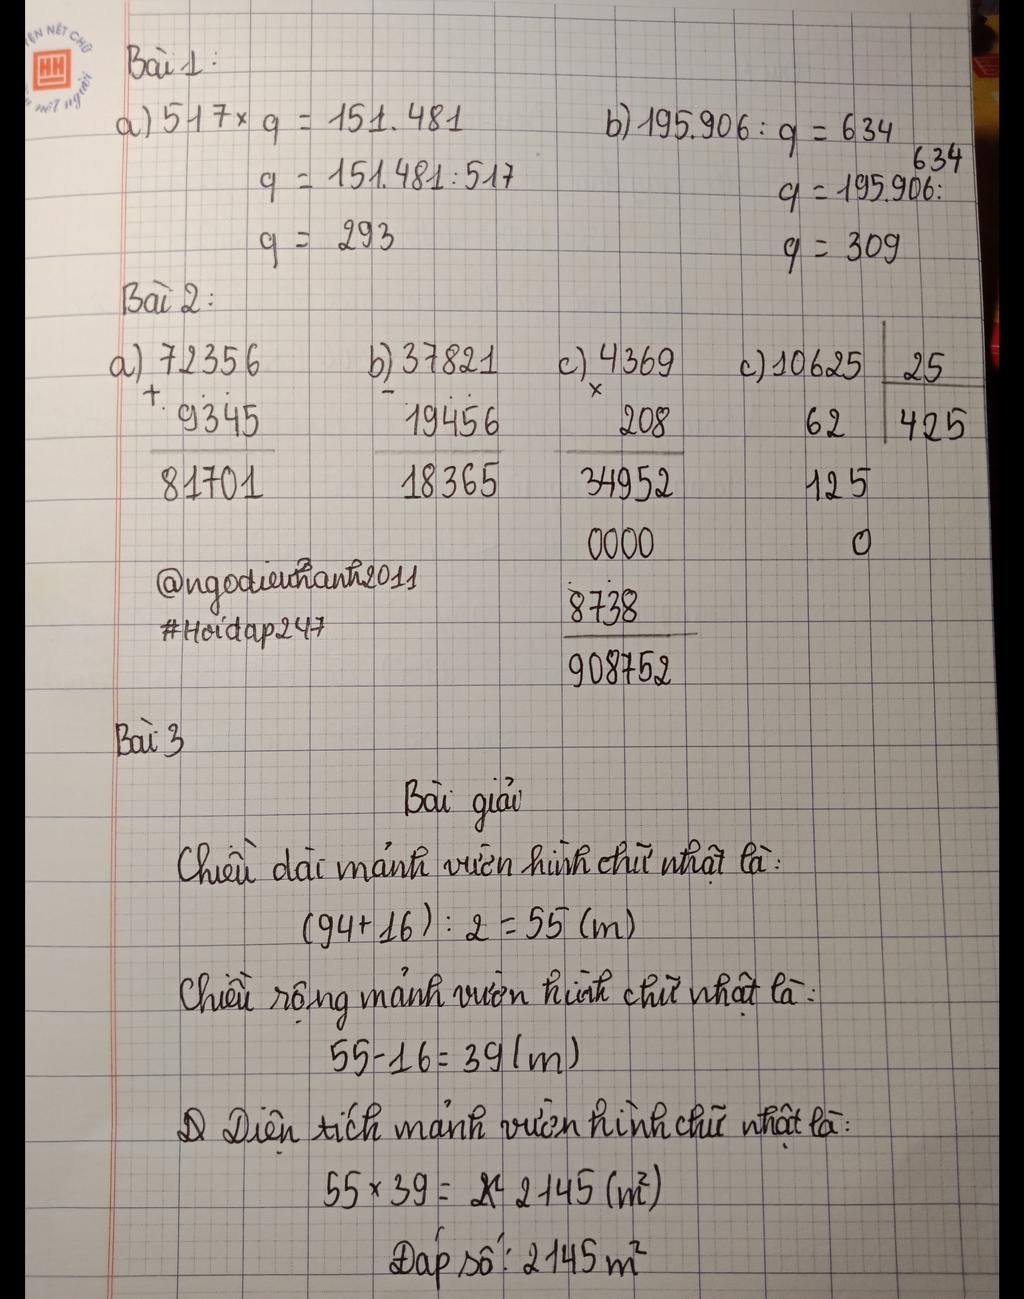 Bài 1:
a) 517 × q = 151.481
q = 151.481:517
q = 293
b) 195.906 : q = 634
634
q = 195.906:
q = 309
Bài 2:
a) 72356
+
9345
81701
b) 37821
-
19456
18365
c) 4369
×
208
34952
0000
8738
908752
c) 10625 25
62 425
125
0
@ngodieuhanh2011
#Hoidap247
Bài 3
Bài giải
Chiều dài mảnh vườn hình chữ nhật là:
(94+16) : 2 = 55 (m)
Chiều rộng mảnh vườn hình chữ nhật là:
55-16 = 39 (m)
Diện tích mảnh vườn hình chữ nhật là:
55 × 39 = 2145 (m²)
Đáp số: 2145 m²
HH
NÉT CHỮ
NẾT NGƯỜI